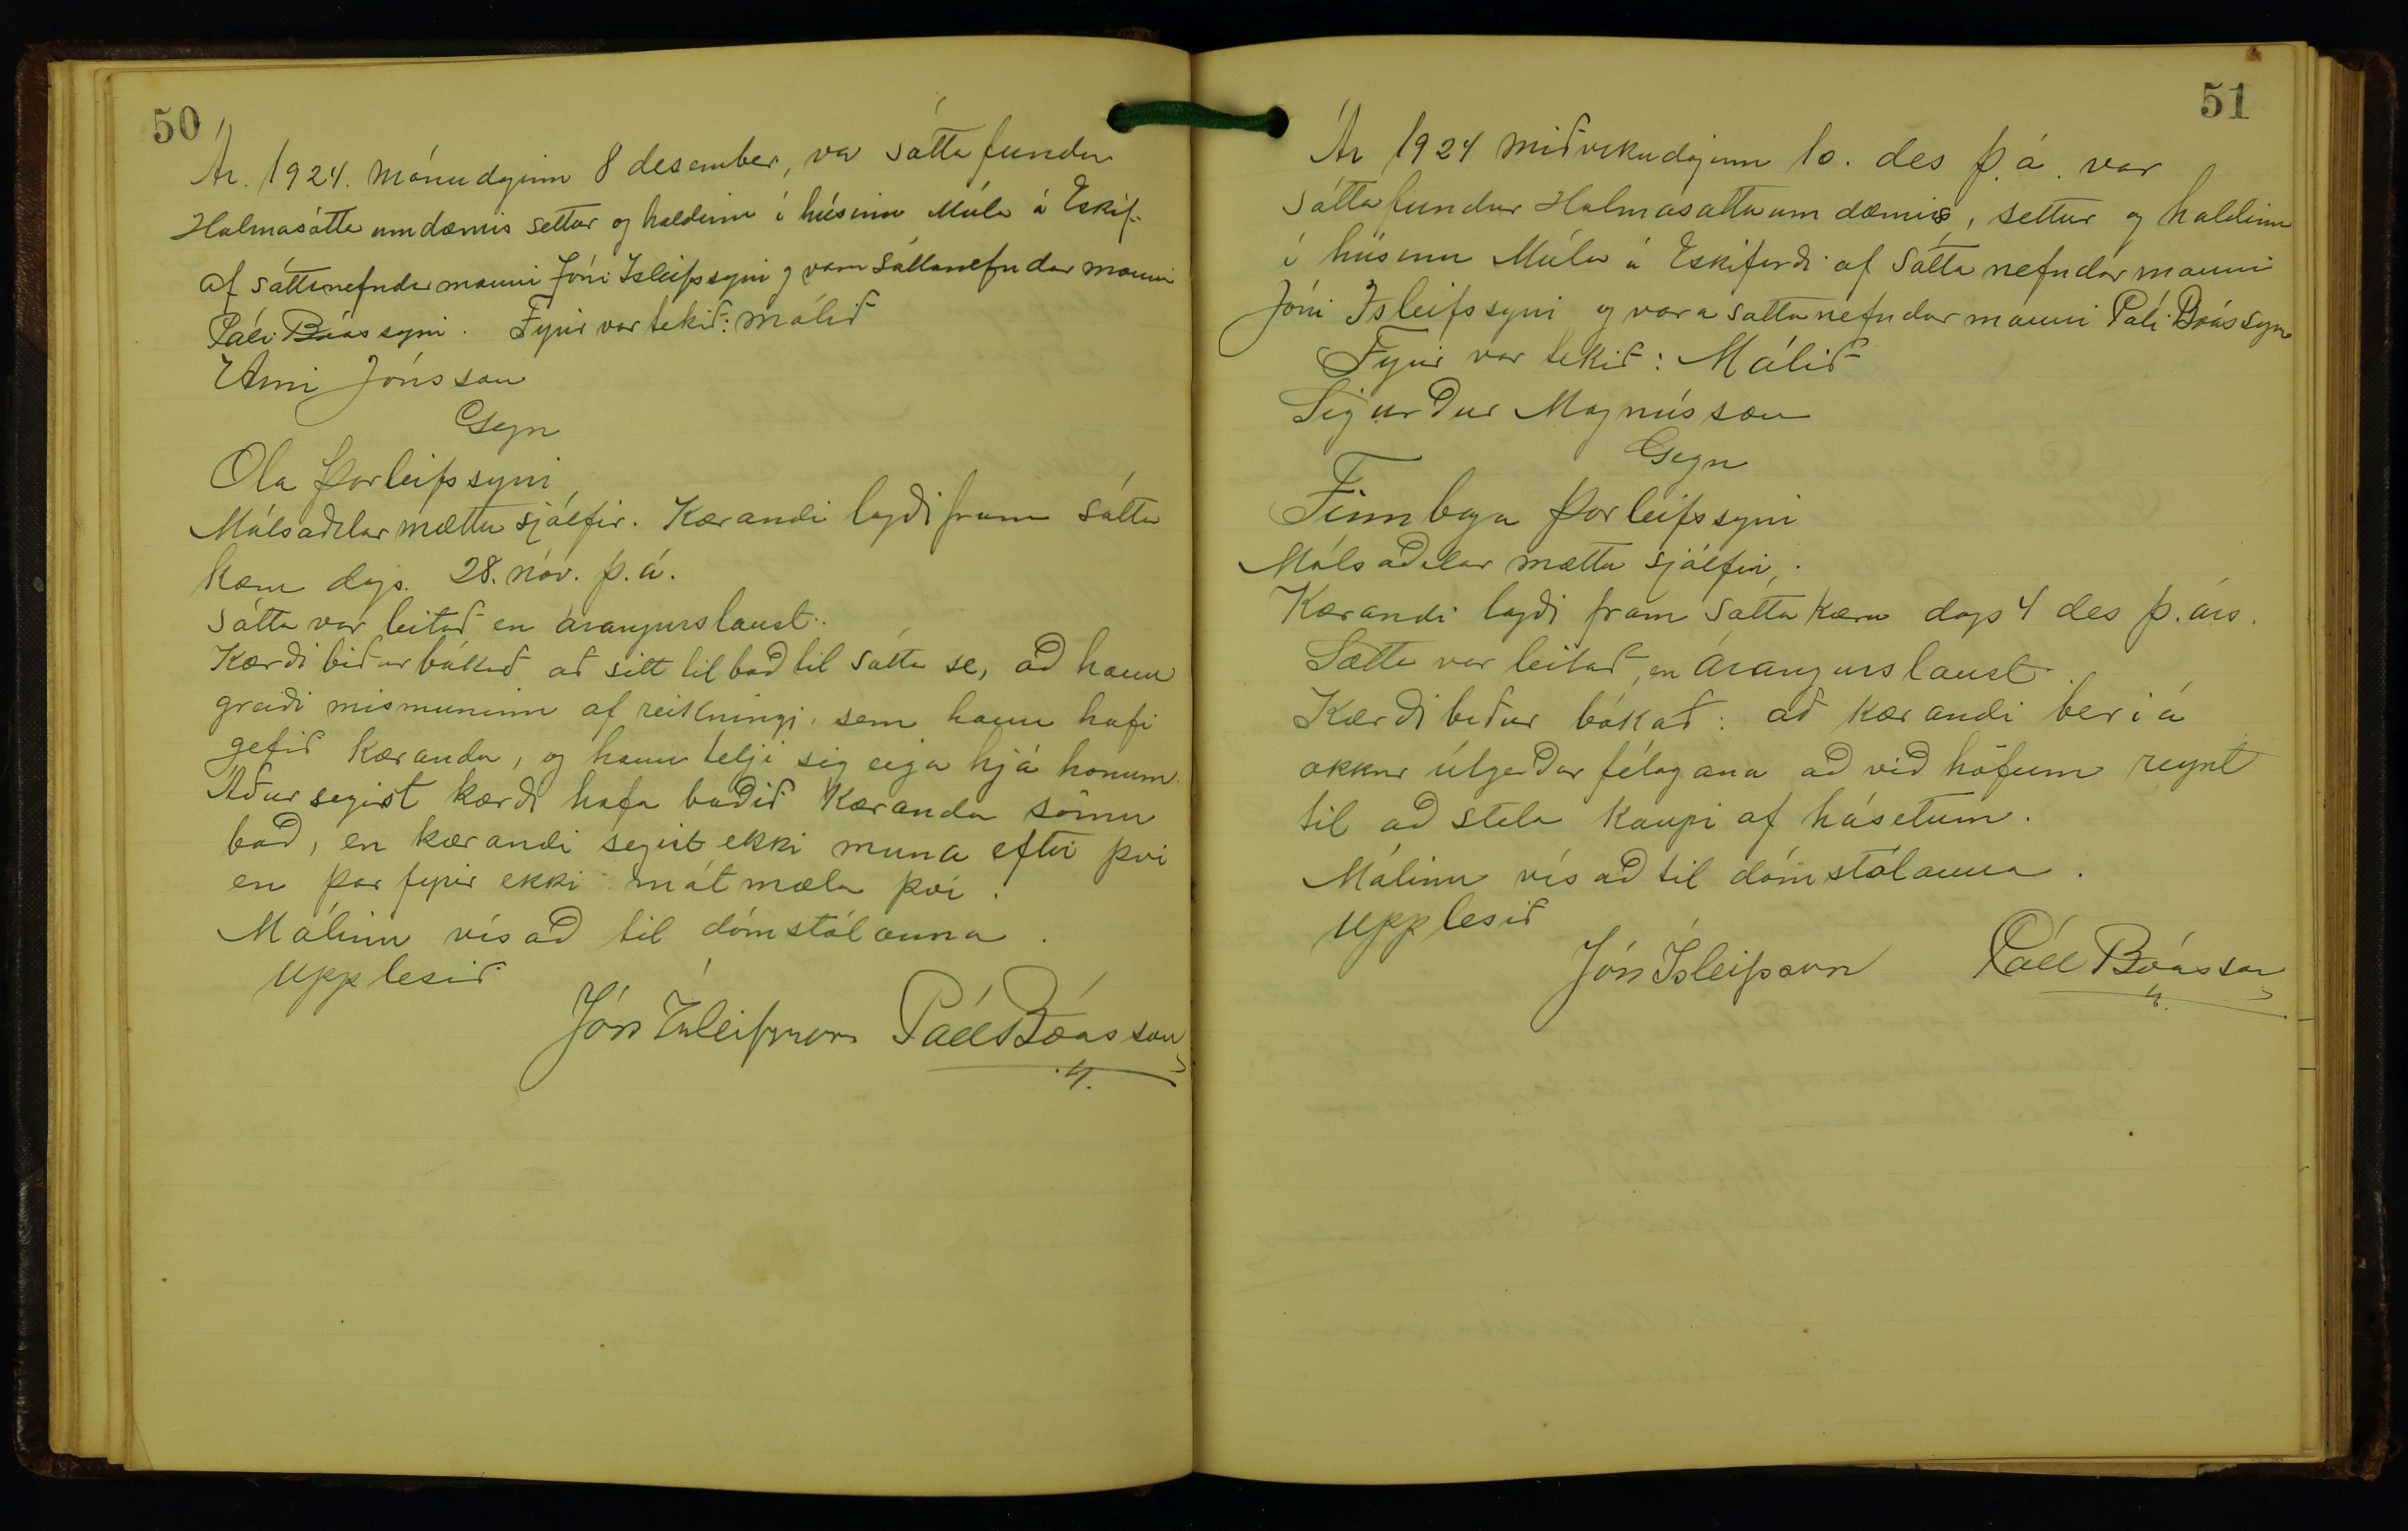 50
Ár. 1924. mánudaginn 8 desember, var sáttafundur
Hólmasáttaumdæmis settur og haldinn í húsinu Múla á Eskif.
af sáttanefndarmanni Jóni Isleifssyni og vara sáttanefndarmanni
Páli Bóassyni. Fyrir var tekið: málið
Arni Jónsson
Gegn
Ola Þorleifssyni
Málsaðilar mættu sjálfir. Kærandi lagði fram sátta
kæru dags. 28. nóv. þ.á.
Sátta var leitað en árangurslaust.
Kærði biður bókað að sitt tilboð til sátta se, að hann
greiði mismuninn af reikningi, sem hann hafi
gefið Kæranda, og hann telji sig eiga hjá honum.
Aður segist kærði hafa boðið Kæranda sömu
boð, en kærandi segist ekki muna eftir því
en þar fyrir ekki mótmæla því.
Málinu vísað til dómstólanna.
Upplesið
Jón Ísleifsson Páll Bóasson
51
Ár 1924 miðvikudaginn 10. des þ.á. var
Sáttafundur Hólmasáttaumdæmis, settur og haldinn
í húsinu Múla á Eskifirði af Sáttanefndarmanni
Jóni Isleifssyni og vara sáttanefndarmanni Páli Bóassyni
Fyrir var tekið: Málið
Sigurður Magnússon
Gegn
Finnboga Þorleifssyni
Málsaðilar mættu sjálfir.
Kærandi lagði fram Sáttakæru dags 4 des þ. árs.
Sátta var leitað, en árangurslaust.
Kærði biður bókað: að kærandi beri á
okkur útgerðarfélagana að við höfum reynt
til að stela kaupi af hásetum.
Málinu vísað til dómstólanna.
Upplesið
Jón Ísleifsson Páll Bóasson